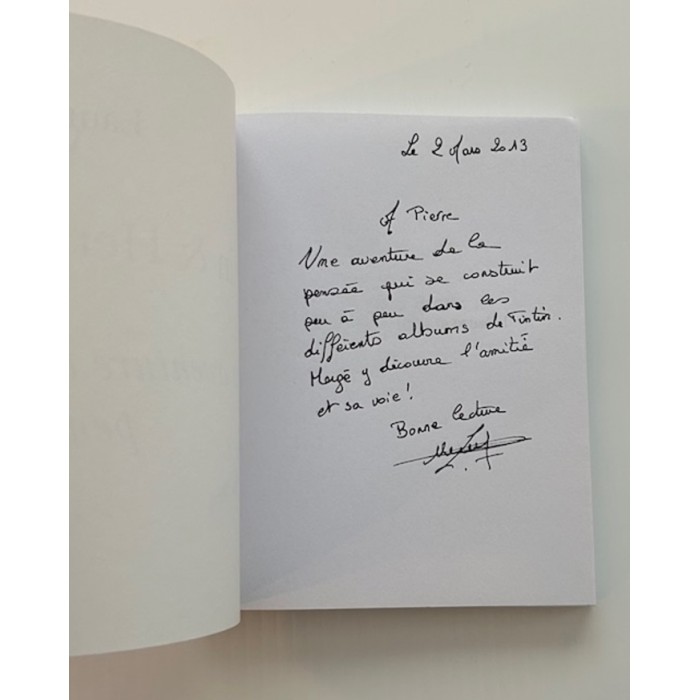 Le 2 Mars 2013
A Pierre
Une aventure de la
pensée qui se construit
peu à peu dans les
différents albums de Tintin.
Hergé y découvre l'amitié
et sa voie !
Bonne lecture